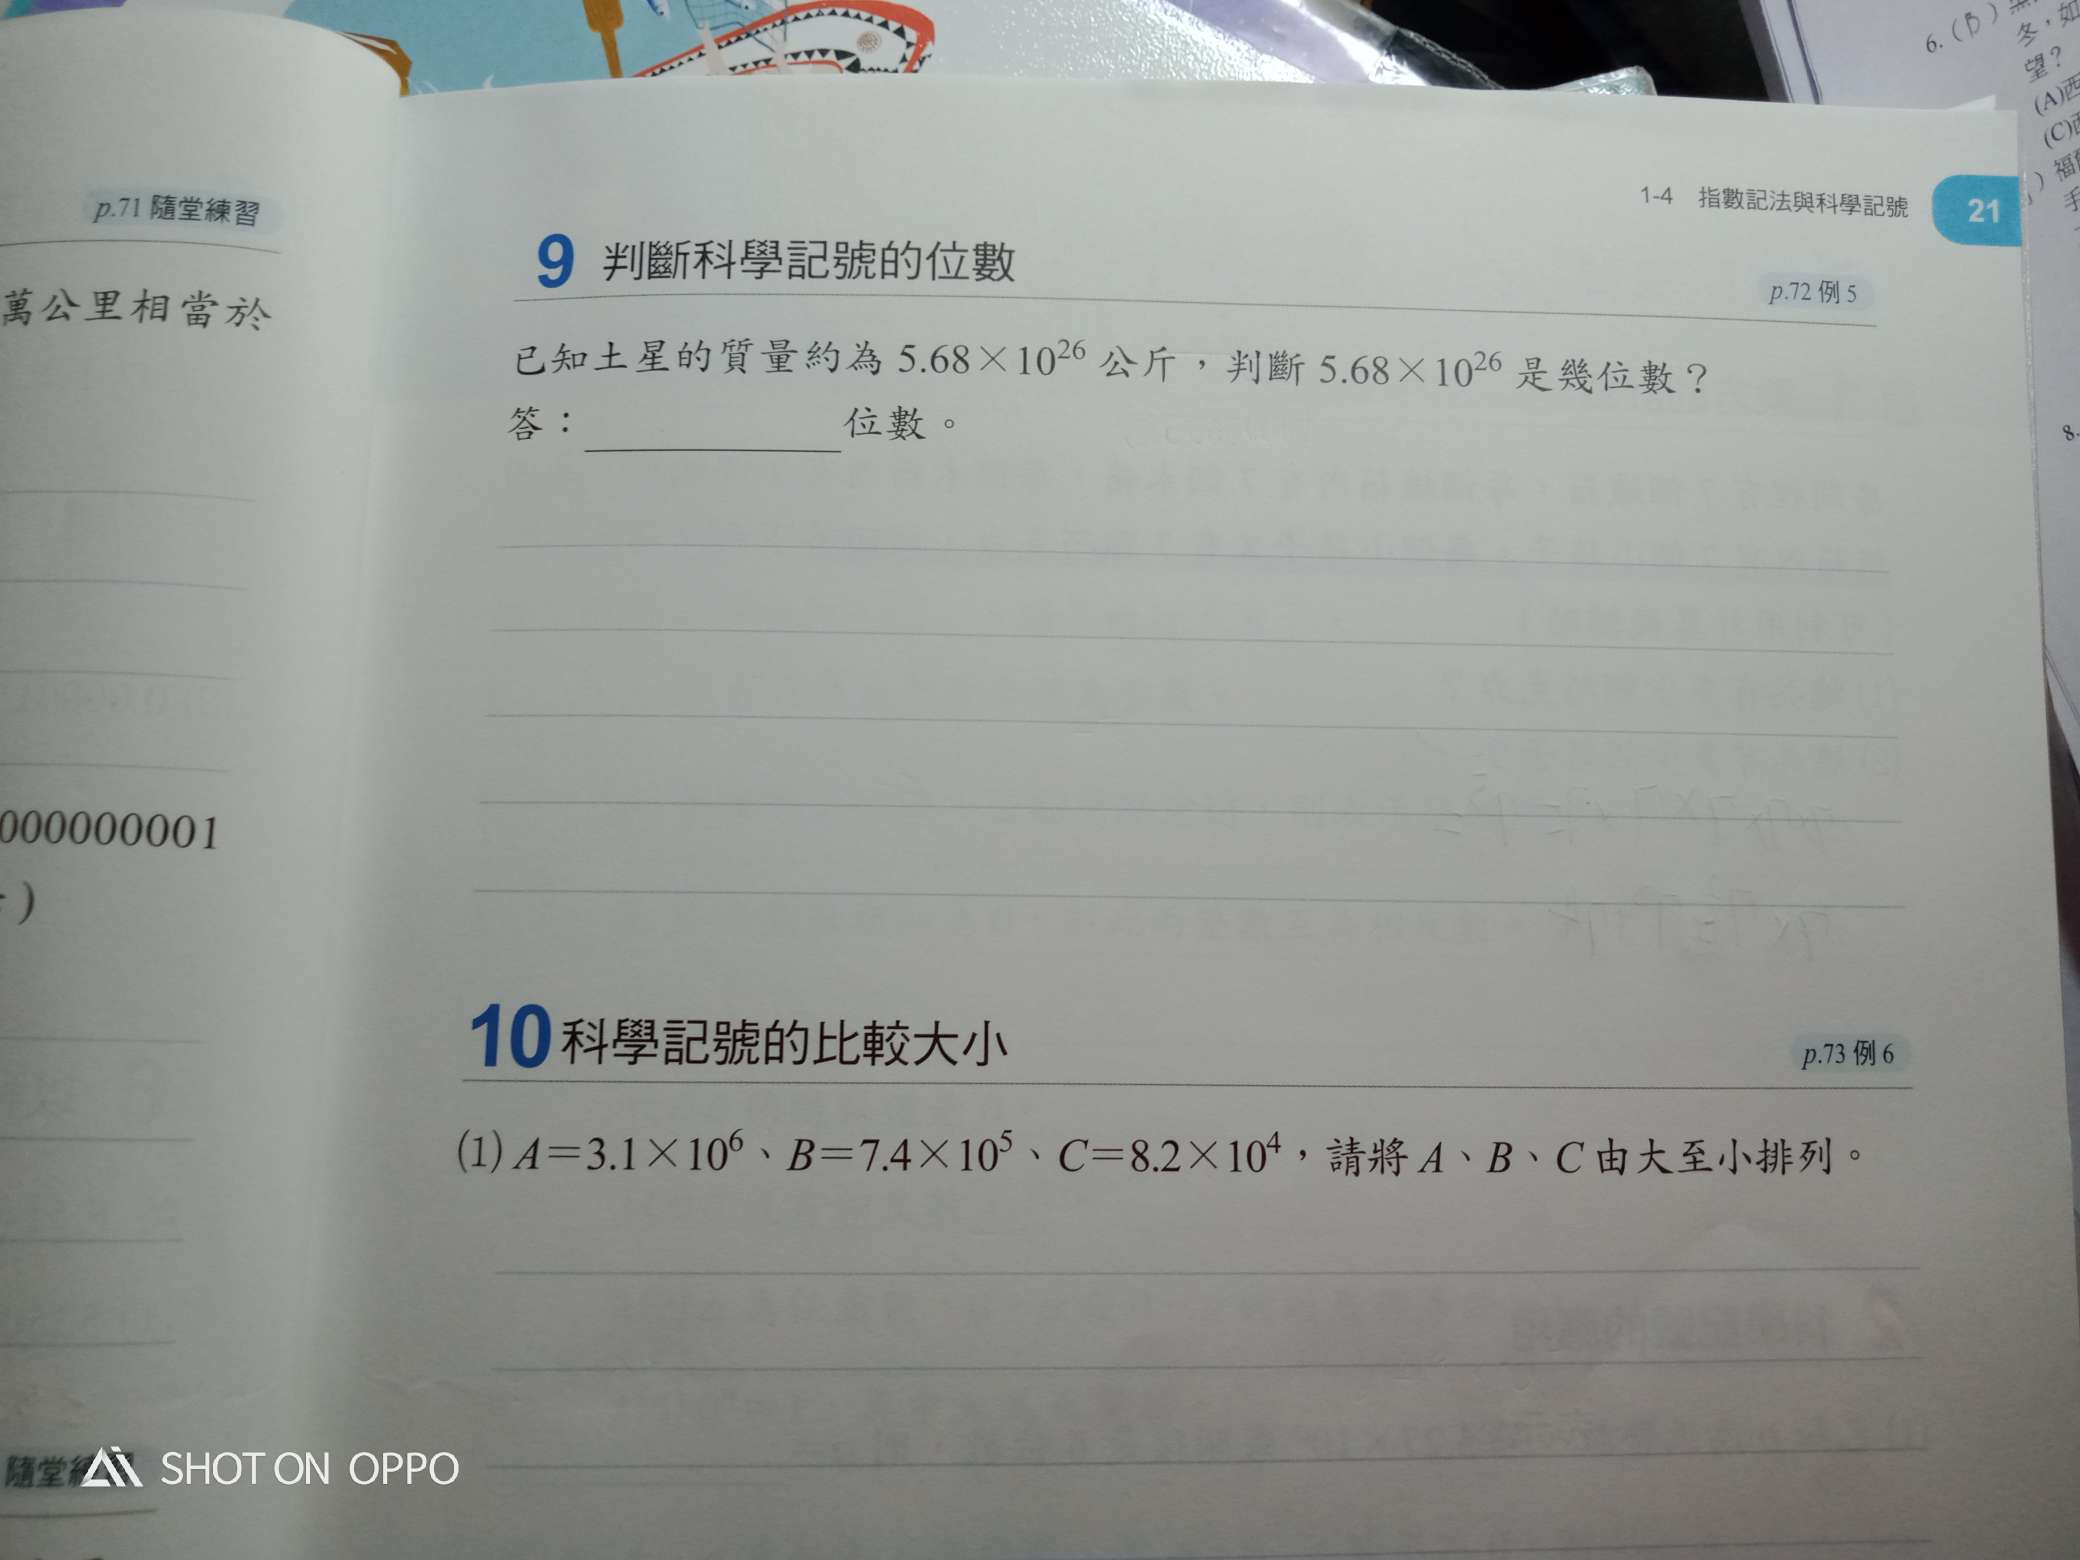 p.71 隨堂練習
萬公里相當於
000000001
1-4 指數記法與科學記號 21
9 判斷科學記號的位數
p.72 例 5
已知土星的質量約為 5.68×10²⁶ 公斤，判斷 5.68×10²⁶ 是幾位數？
答：＿＿＿＿＿位數。
10 科學記號的比較大小
p.73 例 6
(1) A＝3.1×10⁶、B＝7.4×10⁵、C＝8.2×10⁴，請將 A、B、C 由大至小排列。
隨堂練習
SHOT ON OPPO
6. (B)
冬，如
望？
(A)西
(C)
8.